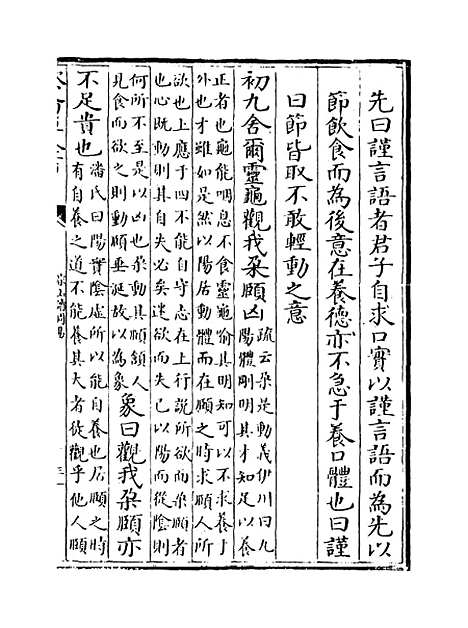 先曰謹言語者君子自求口實以謹言語而為先以
節飲食而為後意在養德亦不急于養口體也曰謹
曰節皆取不敢輕動之意
初九舍爾靈龜觀我朶頤凶
疏云朶是動義伊川曰九
陽體剛明其才知足以養
正者也龜能咽息不食靈龜喻其明知可以不求養于
外也才雖如是然以陽居動體而在頤之時求頤人所
欲也上應于四不能自守志在上行說所欲而朶頤者
也心既動則其自失必矣迷欲而失已以陽而從陰則
何所不至是以凶也朶動其頤頷人
見食而欲之則動頤垂涎故以為象
象曰觀我朶頤亦
不足貴也
潘氏曰陽實陰虛所以能自養也居頤之時
有自養之道不能養其大者徒觀乎他人頤